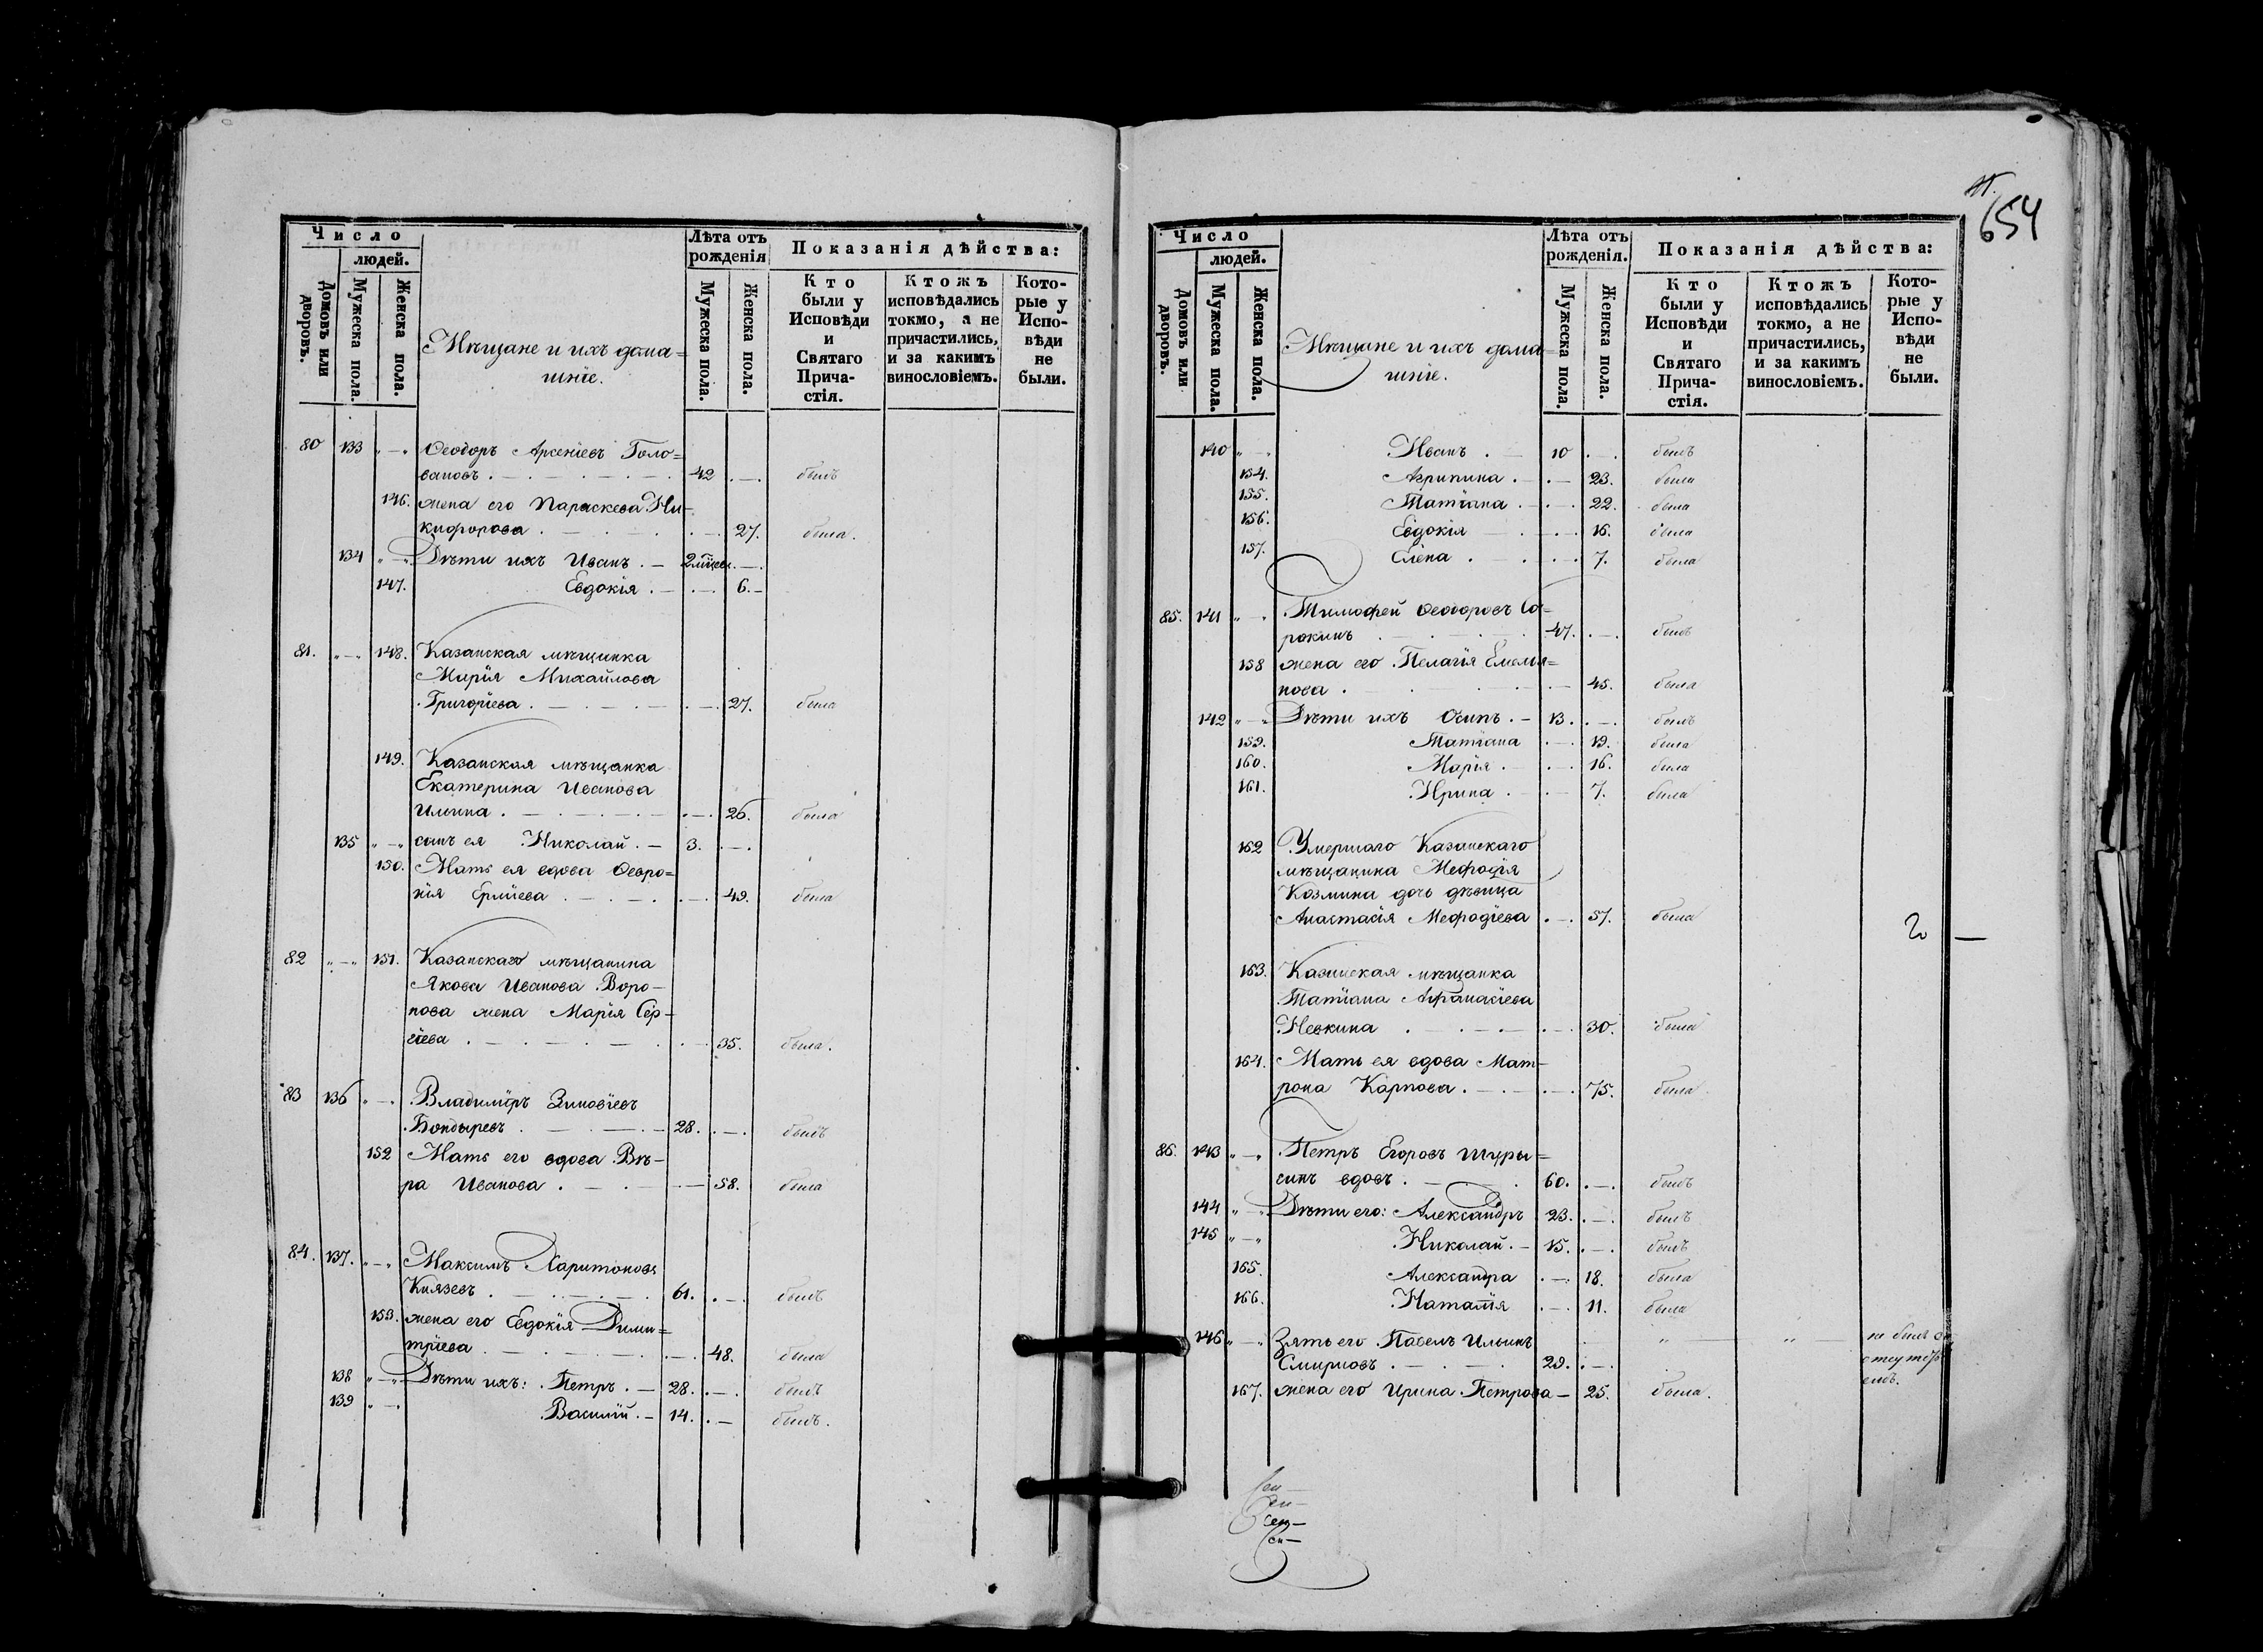 Число
людей.
Домовъ или дворовъ.
Мужеска пола.
Женска пола.
Мѣщане и ихъ дома=
шніе.
Лѣта отъ
рожденія
Мужеска пола.
Женска пола.
Показанія дѣйства:
Кто
были у
Исповѣди
и
Святаго
Прича-
стія.
Ктожъ
исповѣдались
токмо, а не
причастились,
и за какимъ
винословіемъ.
Кото-
рые у
Испо-
вѣди
не
были.
80 133 „—„ Ѳеодоръ Арсеніевъ Голо=
вановъ 42 былъ
146. жена его Параскева Ни-
кифорова 27. была.
134 „—„ Дѣти ихъ Иванъ 2
147. Евдокія 6.
81. „—„ 148. Казанская мѣщанка
Марія Михайлова
Григоріева 27. была
149. Казанская мѣщанка
Екатерина Иванова
Ильина 26. была
135 „—„ сынъ ея Николай 3.
150. Мать ея вдова Ѳевро=
нія Ермѣева 49. была
82 „—„ 151. Казанскаго мѣщанина
Якова Иванова Воро-
нова жена Марія Сер-
гіева 35. была.
83 136 „—„ Владиміръ Зиновіевъ
Бондыревъ 28. былъ
152 Мать его вдова Вѣ-
ра Иванова 58. была
84. 137. „—„ Максимъ Харитоновъ
Князевъ 61. былъ
153. жена его Евдокія Дими=
тріева 48. была
138 „—„ Дѣти ихъ: Петръ 28. былъ
139 „—„ Василій 14. былъ.
654
Число
людей.
Домовъ или дворовъ.
Мужеска пола.
Женска пола.
Мѣщане и ихъ дома=
шніе.
Лѣта отъ
рожденія.
Мужеска пола.
Женска пола.
Показанія дѣйства:
Кто
были у
Исповѣди
и
Святаго
Прича-
стія.
Ктожъ
исповѣдались
токмо, а не
причастились,
и за какимъ
винословіемъ.
Кото-
рые у
Испо-
вѣди
не
были.
140 „—„ Иванъ 10 былъ
154. Агрипина 23. была
155. Татіана 22. была
156. Евдокія 16. была
157. Елена 7. была
85. 141 „—„ Тимофей Ѳеодоровъ Со=
рокинъ 47. былъ
158 жена его Пелагія Емелья=
нова 45. была
142 „—„ Дѣти ихъ Осипъ 13. былъ
159. Татіана 19. была
160. Марія 16. была
161. Ирина 7. была
162 Умершаго Казанскаго
мѣщанина Мефодія
Козмина дочь дѣвица
Анастасія Мефодіева 57. была
163. Казанская мѣщанка
Татіана Афанасіева
Невкина 30. была
164. Мать ея вдова Мат-
рона Карпова 75. была.
86. 143 „—„ Петръ Егоровъ Шуры=
гинъ вдовъ 60. былъ
144 „—„ Дѣти его: Александръ 23. былъ
145 „—„ Николай 15. былъ
165. Александра 18. была
166. Наталія 11. была
146 „—„ Зять его Павелъ Ильинъ не былъ
Смирновъ 29.
167. жена его Ирина Петрова 25. была.